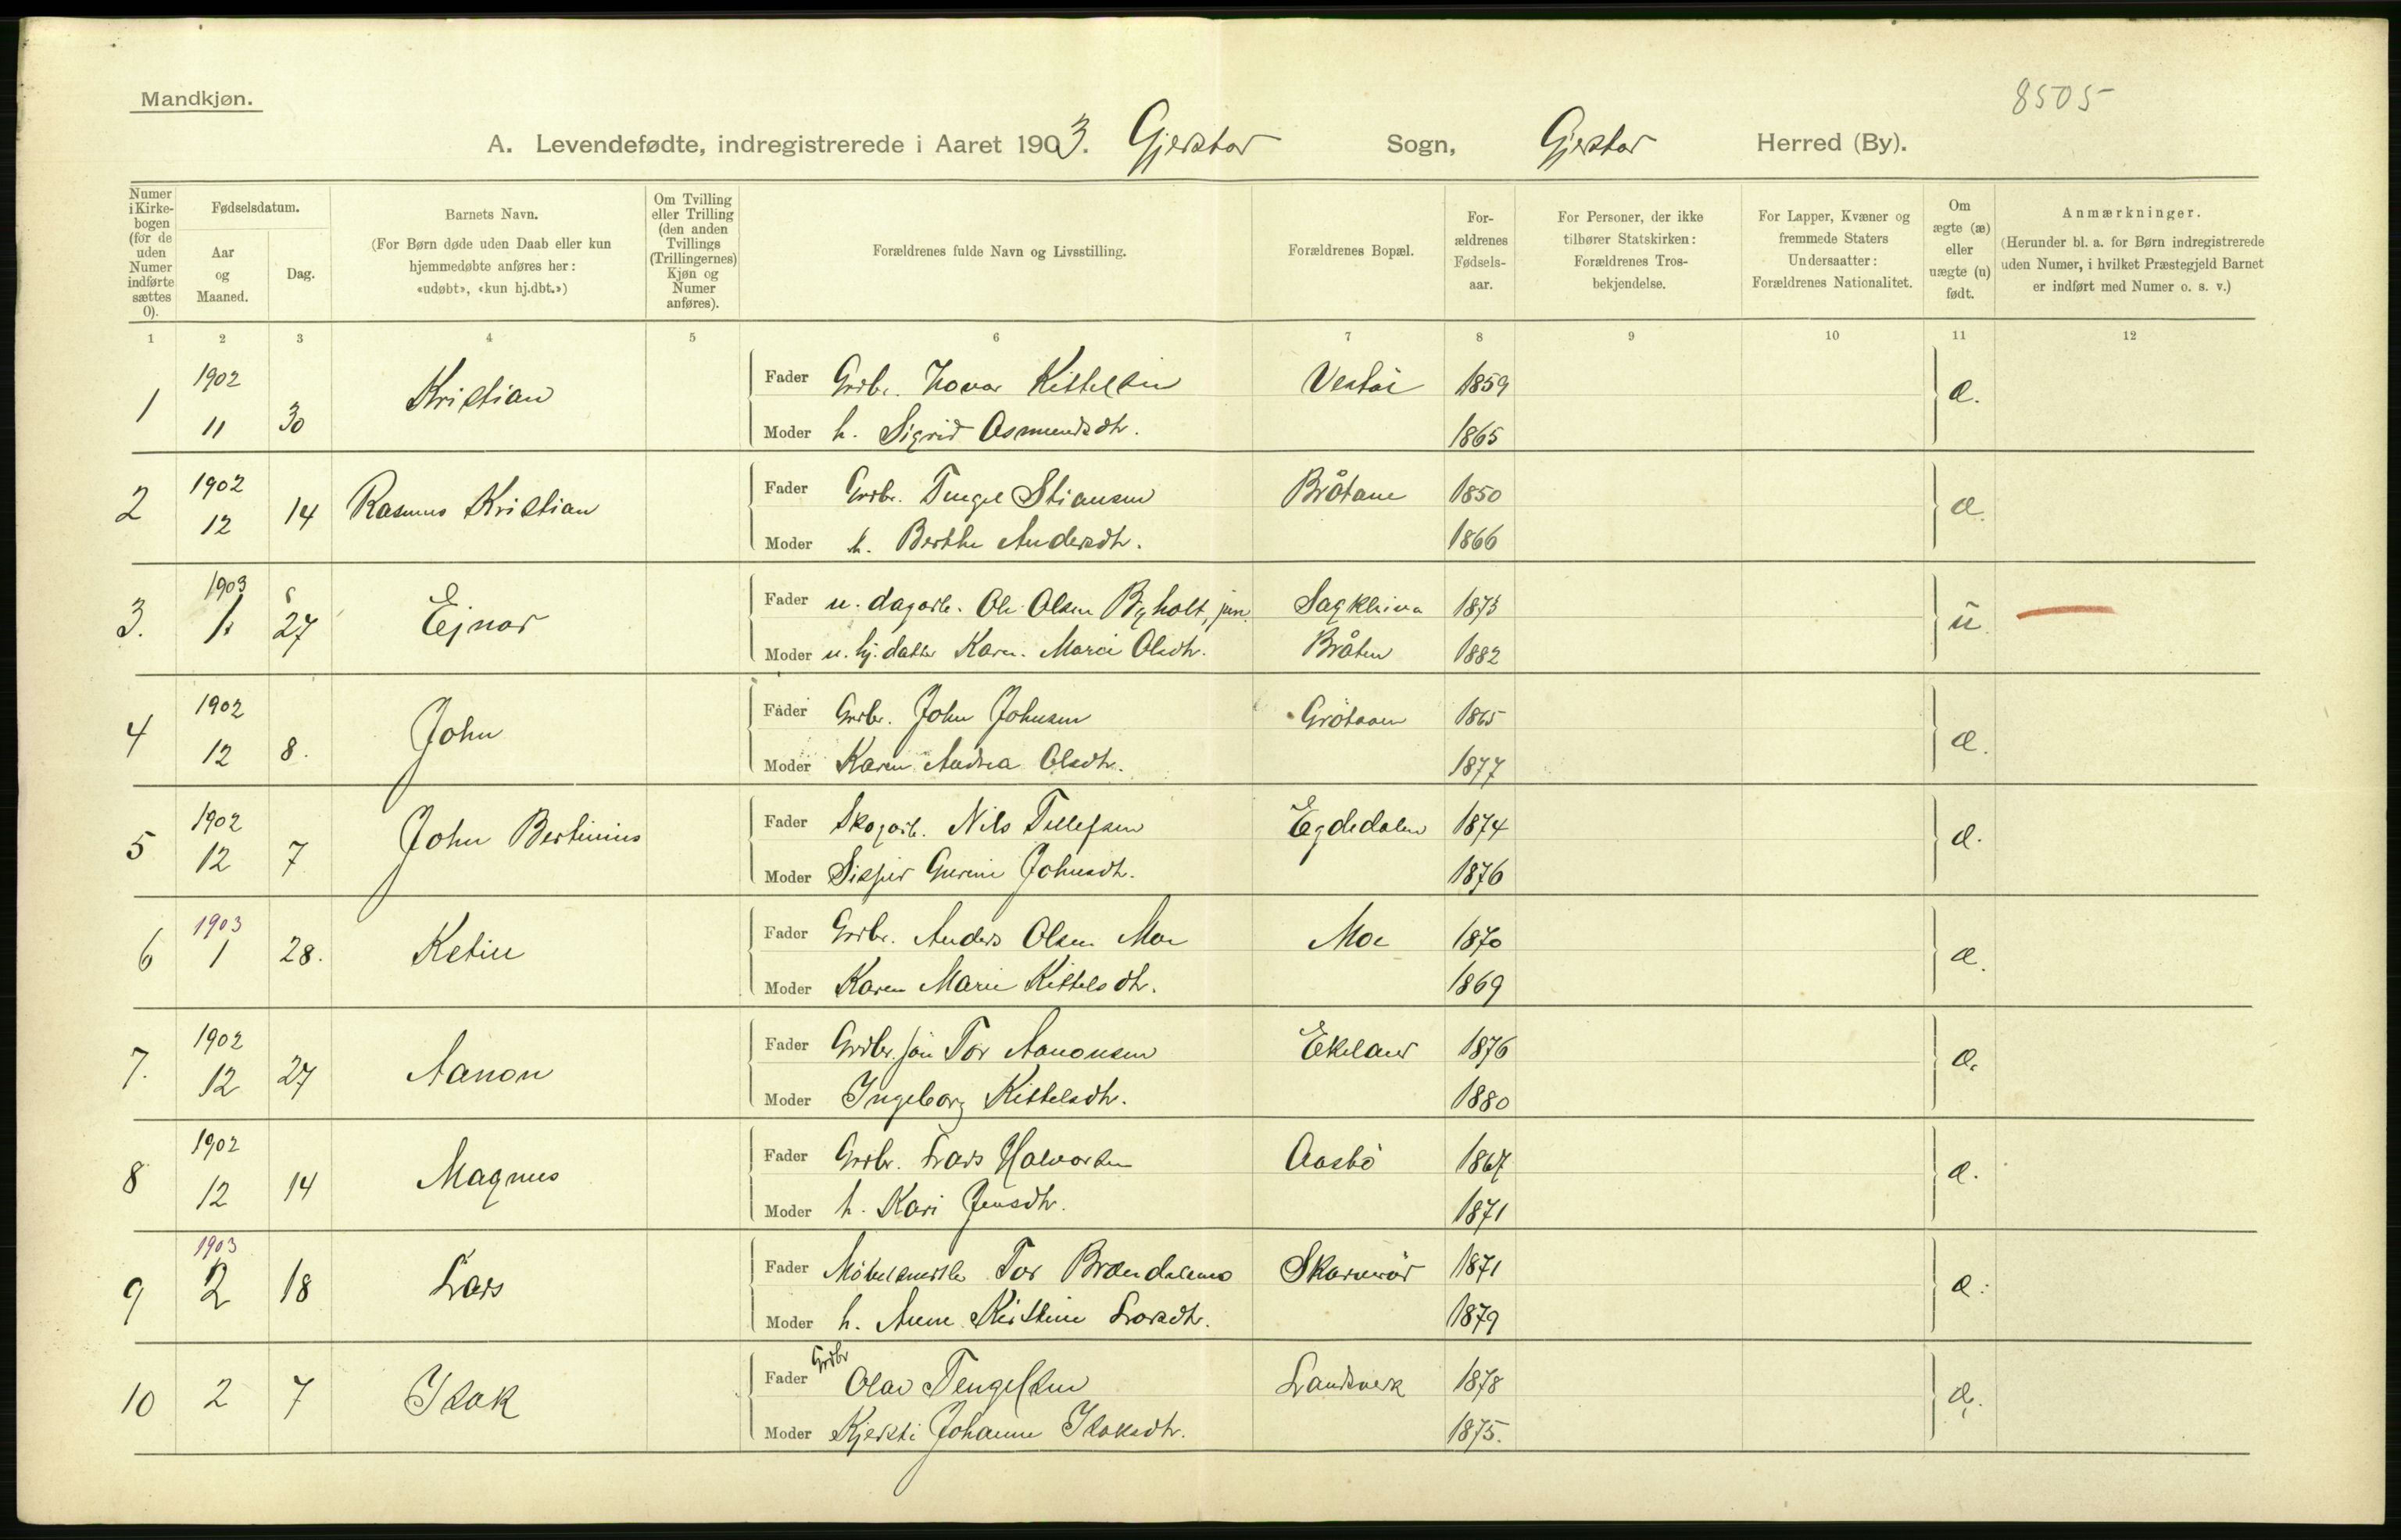 8505
Mandkjøn.
A. Levendefødte, indregistrerede i Aaret 1903. Gjerstad Sogn, Gjerstad Herred (By).
Numer i Kirkebogen (for de uden Numer indførte sættes 0).
Fødselsdatum.
Aar og Maaned.
Dag.
Barnets Navn.
(For Børn døde uden Daab eller kun hjemmedøbte anføres her: «udøbt», «kun hj.dbt.»)
Om Tvilling eller Trilling (den anden Tvillings (Trillingernes) Kjøn og Numer anføres).
Forældrenes fulde Navn og Livsstilling.
Forældrenes Bopæl.
Forældrenes Fødselsaar.
For Personer, der ikke tilhører Statskirken: Forældrenes Trosbekjendelse.
For Lapper, Kvæner og fremmede Staters Undersaatter: Forældrenes Nationalitet.
Om ægte (æ) eller uægte (u) født.
Anmærkninger.
(Herunder bl. a. for Børn indregistrerede uden Numer, i hvilket Præstegjeld Barnet er indført med Numer o. s. v.)
1 2 3 4 5 6 7 8 9 10 11 12
1 1902 11 30 Kristian Fader Grdbr. Kittelsen 1859 æ.
Moder h. Sigrid Osmundsdtr. 1865
2 1902 12 14 Rasmus Kristian Fader Grdbr. Tengel Stiansen Bråtane 1850 æ.
Moder h. Berthe Andersdtr. 1866
3. 1903 1. 27 Ejnar Fader u. dagarb. Ole Olsen Bigholt, jun. Sagkleiva 1875 u.
Moder u. hj. datter Karen Marie Olsdtr. Bråten 1882
4 1902 12 8. John Fader Grdbr. John Johnsen 1865 æ.
Moder Karen Andrea Olsdtr. 1877
5 1902 12 7 John Bertinius Fader Skogarb. Nils Tellefsen Egdedalen 1874 æ.
Moder Gurine Johnsdtr. 1876
6 1903 1 28. Ketin Fader Grdbr. Anders Olsen Moe Moe 1870 æ.
Moder Karen Marie Kittelsdtr. 1869
7. 1902 12 27 Aanon Fader Grdbr. søn Tor Aanonsen Ekeland 1876 æ.
Moder Ingeborg Kittelsdtr. 1880
8 1902 12 14 Magnus Fader Grdbr. Lars Halvorsen Aasbö 1867 æ.
Moder h. Kari Jensdtr. 1871
9 1903 2 18 Lars Fader Möbelsnedker Tor Brændalsmo 1871 æ.
Moder h. Anne Kirstine Larsdtr. 1879
10 2 7 Isak Fader Grdbr Olav Tengelsen Landsverk 1878 æ.
Moder Kjersti Johanne Isaksdtr. 1875.